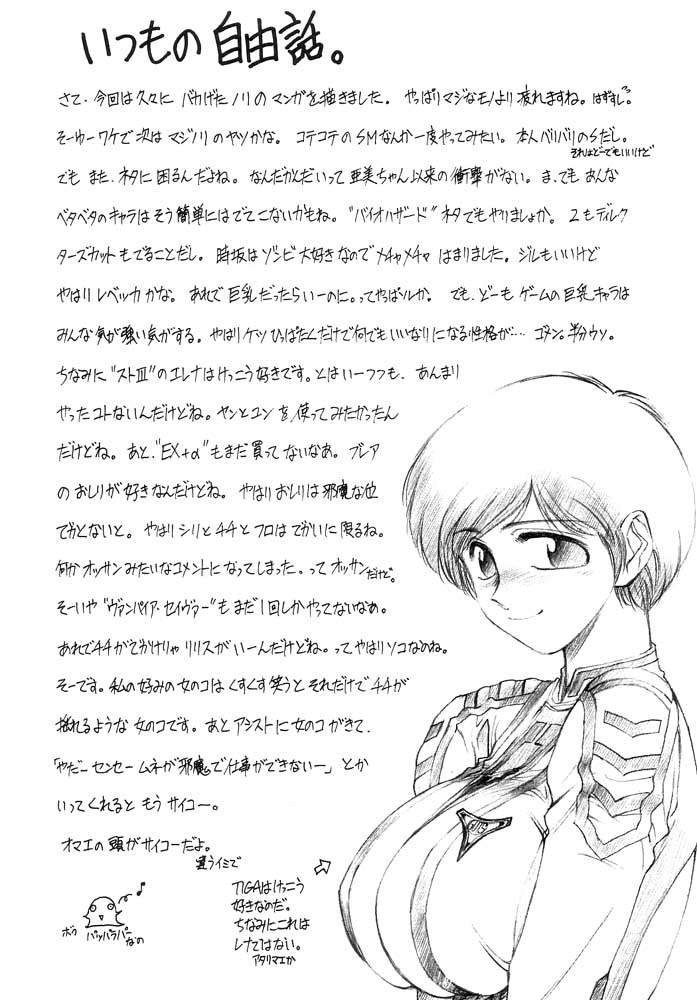 いつもの 自由話。
さて、今回は久々に バカげたノリのマンガを描きました。 やっぱりマジなモノより 疲れますね。はずすし。
そーゆーワケで次は マジノリのヤツかな。 コテコテのSMなんか一度やってみたい。本人バリバリのSだし。
それはどーでもいいけど
でも また、ネタに困るんだよね。なんだかんだいって 亜美ちゃん以来の衝撃がない。ま、でも あんな
ベタベタのキャラはそう簡単にはでてこないかもね。"バイオハザード"ネタでもやりましょか。2もディレク
ターズカットもでることだし。 時坂はゾンビ大好きなのでメチャメチャ はまりました。ジルもいいけど
やはりレベッカかな。あれで巨乳だったらいーのに。ってやっぱソレか。 でも、どーも ゲームの巨乳キャラは
みんな気が強い気がする。やはりケツ ひっぱたくだけで何でもいいなりになる性格が… ゴメン。半分ウソ。
ちなみに"ストⅢ"のエレナはけっこう好きです。とはいーつつも、あんまり
やったコトないんだけどね。ヤンとユン を使ってみたかったん
だけどね。あと、"EX+α"もまだ買ってないなあ。 ブレア
の おしりが好きなんだけどね。 やはり おしりは邪魔な位
でかとないと。 やはり シリとチチとフロはでかいに限るね。
何か オッサンみたいなコメントになってしまった。ってオッサンだけど。
そーいや"ヴァンパイア・セイヴァー"もまだ1回しかやってないなあ。
あれでチチがでかけりゃ リリスがいーんだけどね。ってやはりソコなのね。
そーです。私の好みの女のコはくすくす笑うと それだけで チチが
揺れるような 女のコです。 あと アシストに 女のコがきて、
「やだー センセー ムネが邪魔で仕事ができないー」とか
いってくれると もう サイコー。
オマエの頭がサイコーだよ。
違うイミで
ボク パッパラパー なの
TIGAはけっこう
好きなのだ。
ちなみにこれは
レナではない。
アタリマエか